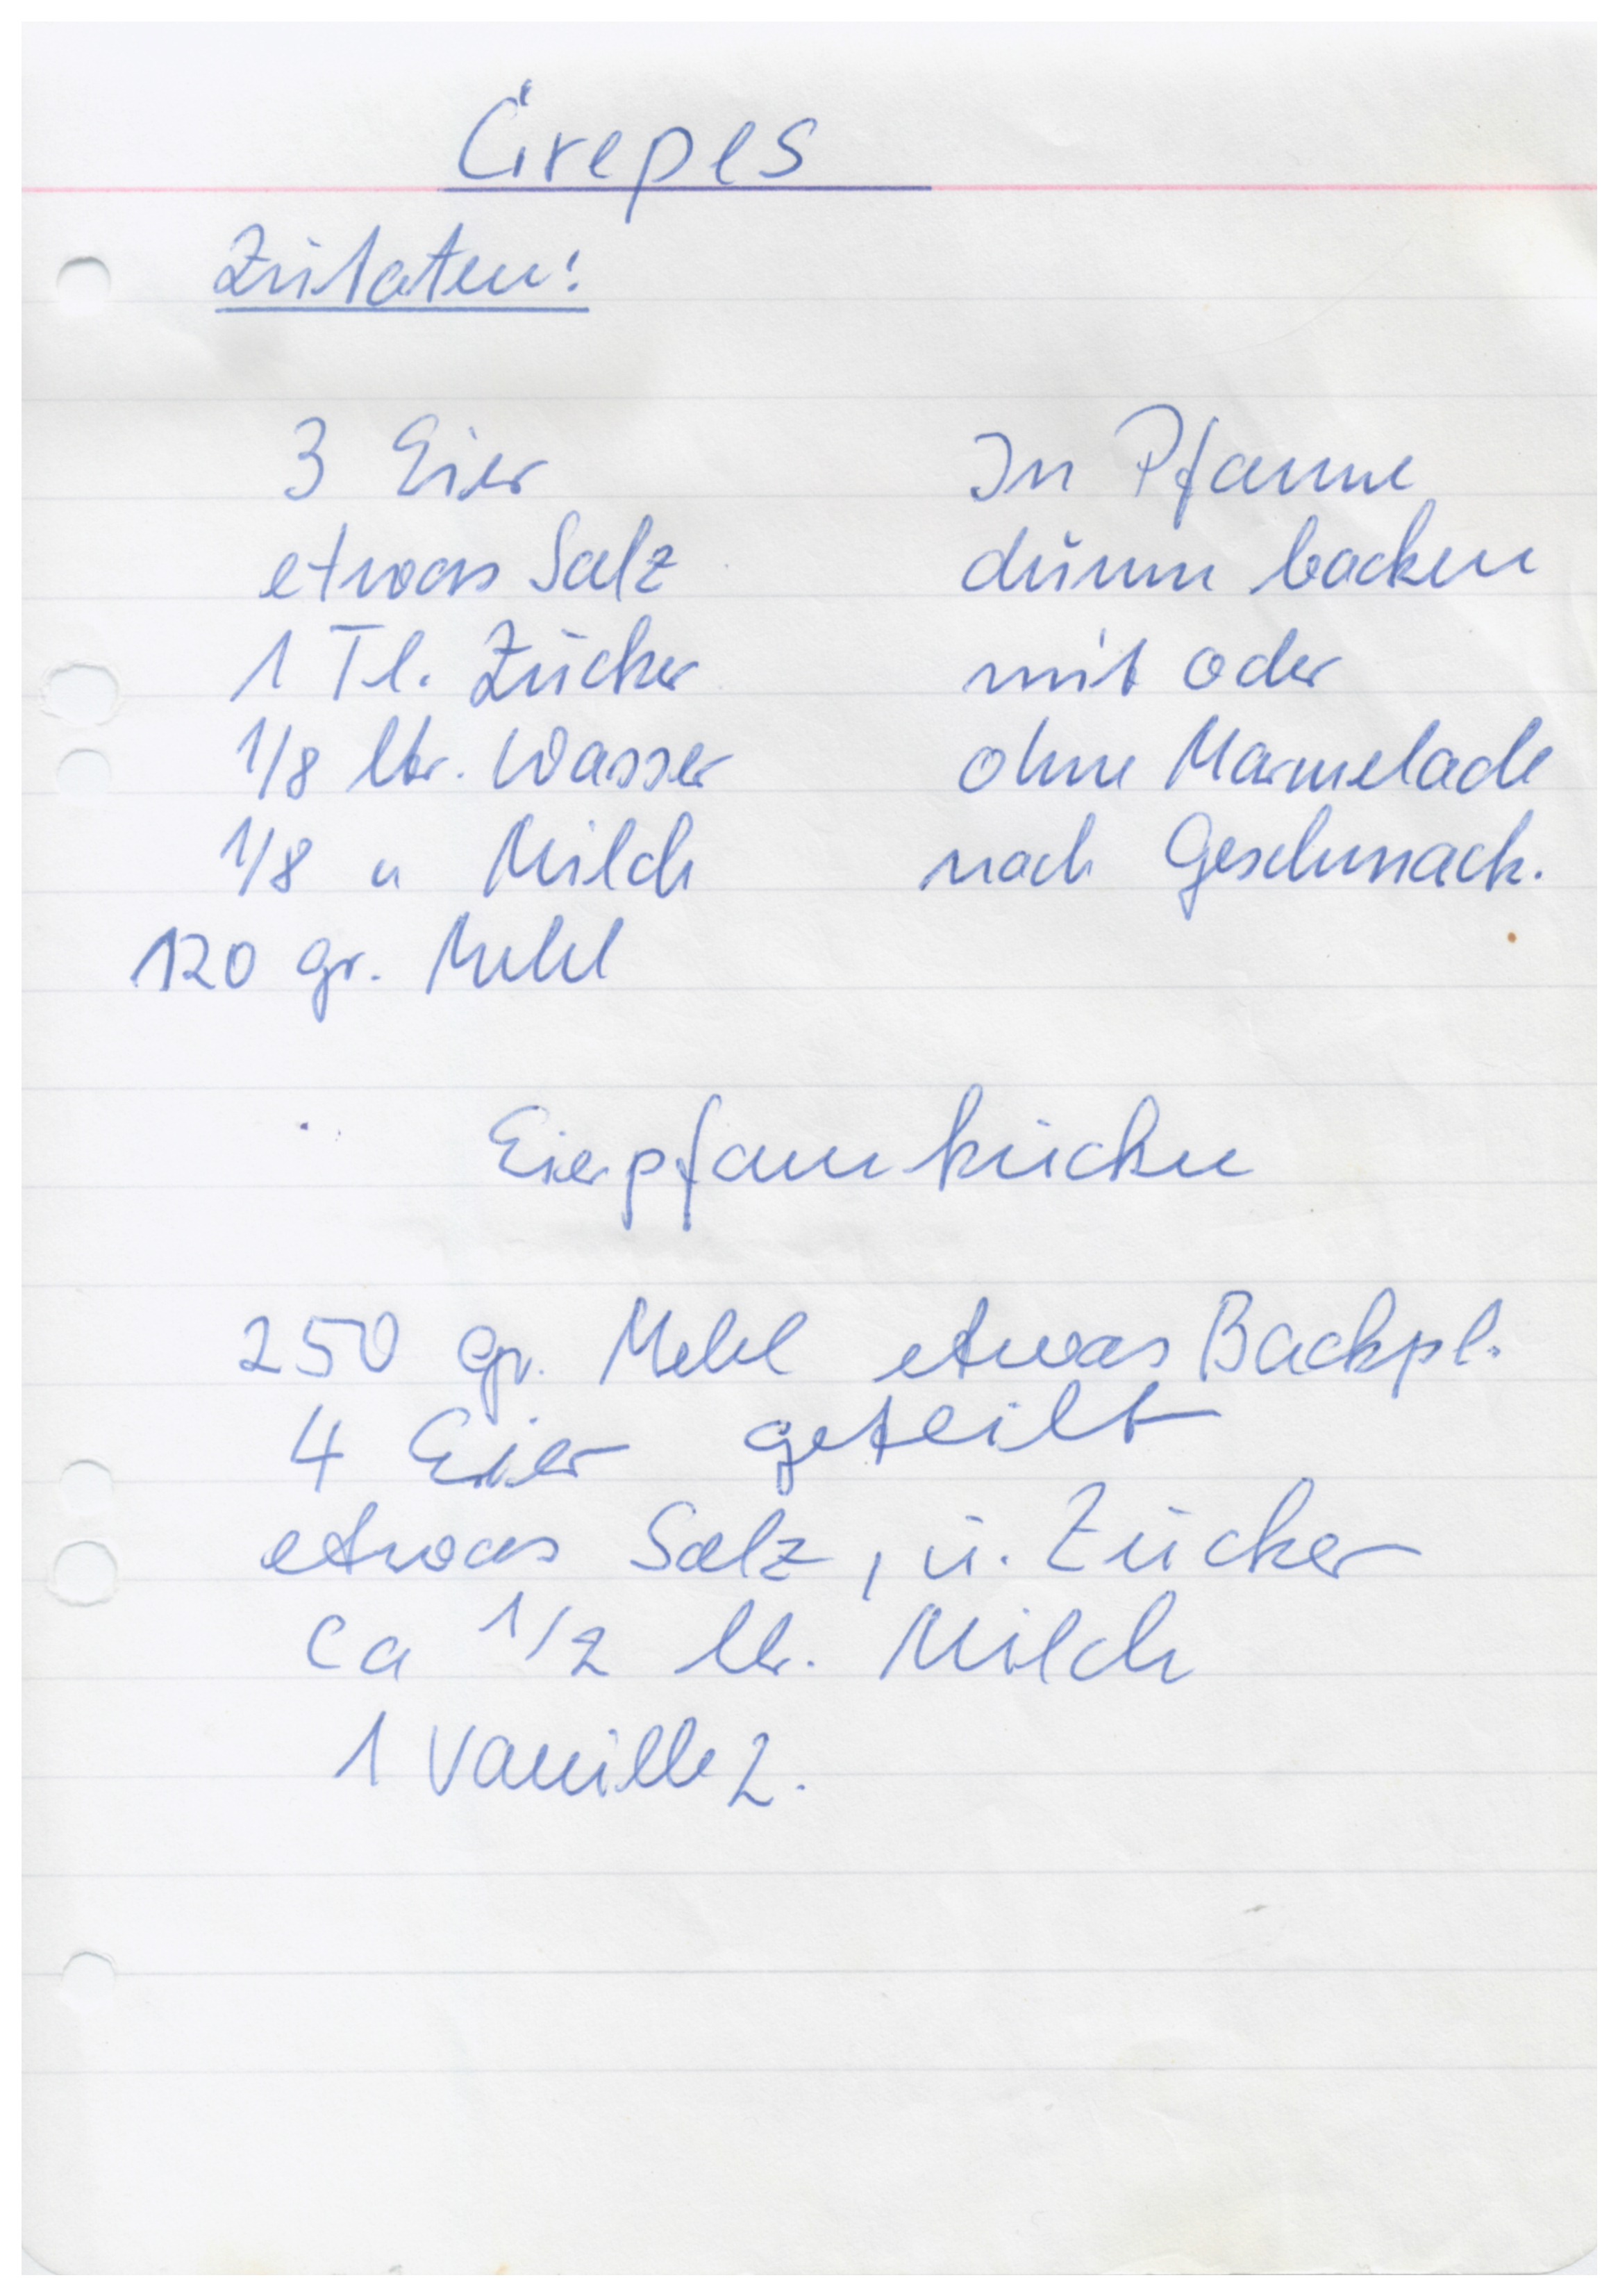 Crepes
Zutaten:
3 Eier
etwas Salz
1 Tl. Zucker
1/8 ltr. Wasser
1/8 " Milch
120 gr. Mehl
In Pfanne
dünn backen
mit oder
ohne Marmelade
nach Geschmack.
Eierpfannkuchen
250 gr. Mehl etwas Backpl.
4 Eier geteilt
etwas Salz, u. Zucker
ca 1/2 ltr. Milch
1 Vanille Z.